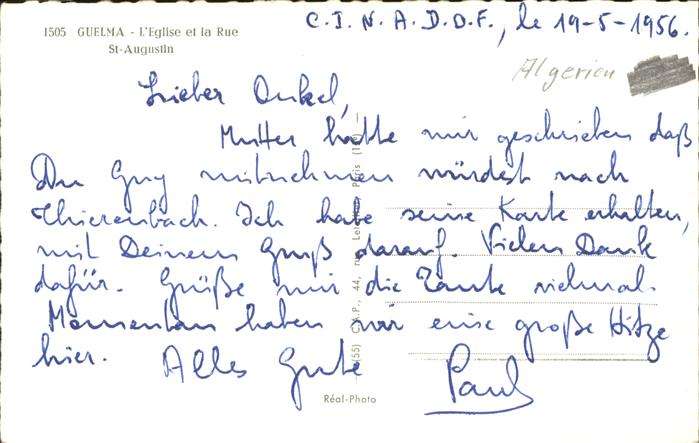 1505 GUELMA - L'Eglise et la Rue
St-Augustin
C.I.N.A.D.D.F., le 19-5-1956.
Algerien
Lieber Onkel,
Mutter hatte mir geschrieben daß
Du Guy mitnehmen würdest nach
Thierenbach. Ich habe seine Karte erhalten,
mit Deinem Gruß darauf. Vielen Dank
dafür. Grüße mir die Tante vielmal.
Momentan haben wir eine große Hitze
hier. Alles Gute Paul
Réal-Photo